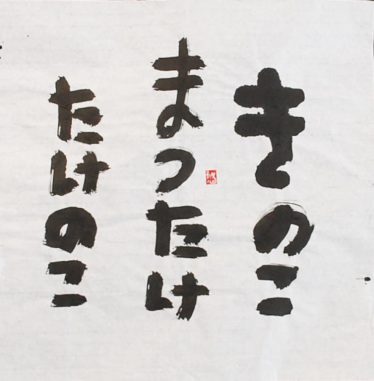 きのこ
まつたけ
たけのこ